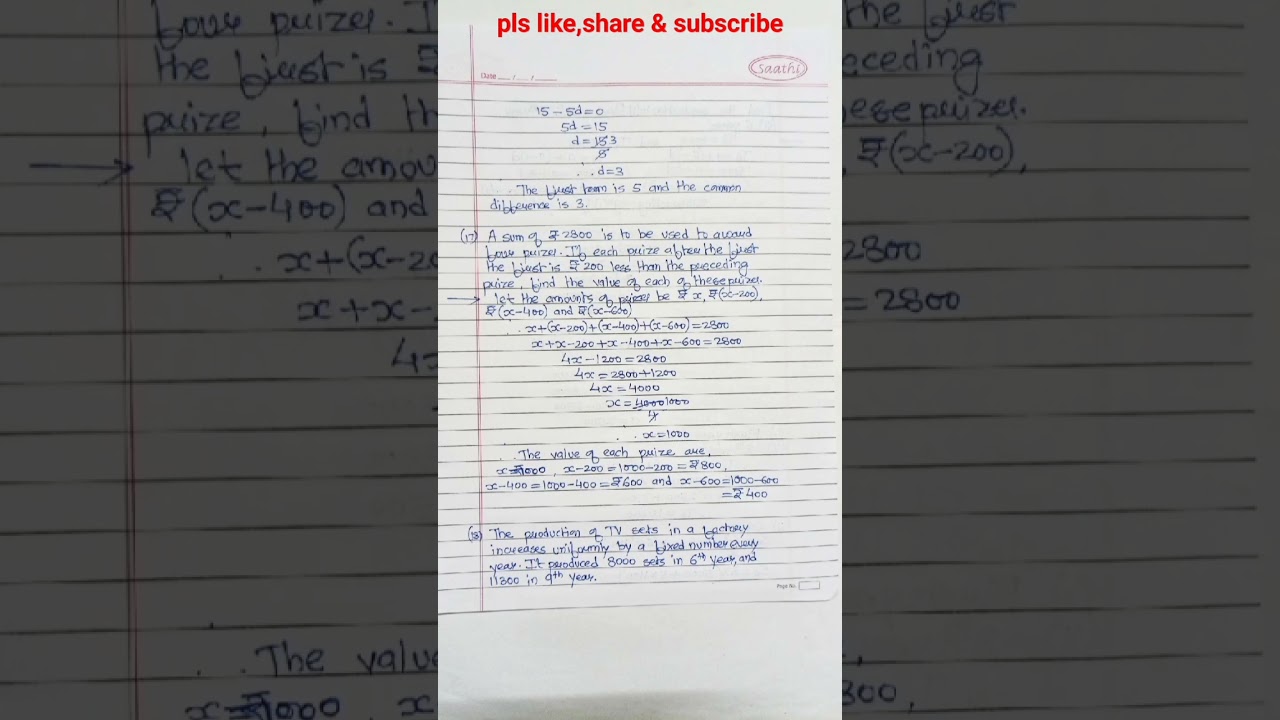 pls like,share & subscribe
Saathi
Date __/__/__
15 - 5d = 0
5d = 15
d = 15 3
5
∴ d = 3
∴ The first term is 5 and the common
difference is 3.
(17) A sum of ₹ 2800 is to be used to award
four prizes. If each prize after the first
the first is ₹ 200 less than the preceding
prize, find the value of each of these prizes.
→ let the amounts of prizes be ₹ x, ₹(x-200),
₹(x-400) and ₹(x-600)
∴ x+(x-200)+(x-400)+(x-600)=2800
x+x-200+x-400+x-600=2800
4x-1200=2800
4x=2800+1200
4x=4000
x=4000 1000
4
∴ x=1000
∴ The value of each prize are,
x=₹1000, x-200=1000-200=₹800,
x-400=1000-400=₹600 and x-600=1000-600
=₹400
(18) The production of TV sets in a factory
increases uniformly by a fixed number every
year. It produced 8000 sets in 6th year, and
11300 in 9th year.
Page No.